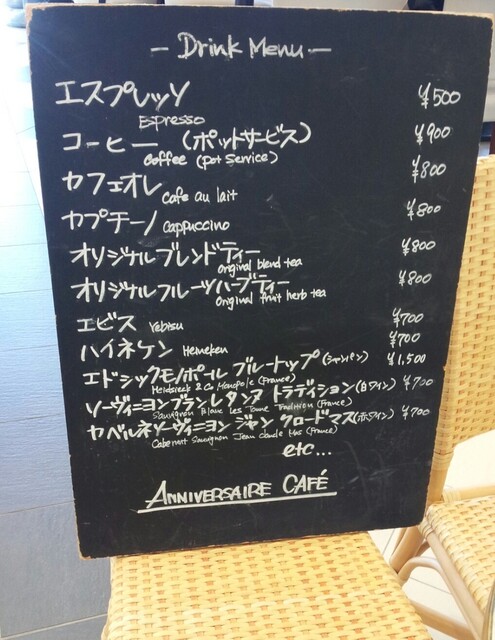 — Drink Menu —
エスプレッソ ¥500
Espresso
コーヒー (ポットサービス) ¥900
coffee (pot service)
カフェオレ cafe au lait ¥800
カプチーノ cappuccino ¥800
オリジナルブレンドティー ¥800
original blend tea
オリジナルフルーツハーブティー ¥800
original fruit herb tea
エビス Yebisu ¥700
ハイネケン Heineken ¥700
エドシックモノポール ブルートップ (シャンパン) ¥1,500
Heidsieck & Co Monopole (France)
ソーヴィニヨンブラン レ タンヌ トラディション (白ワイン) ¥700
Sauvignon Blanc Les Tanne Tradition (France)
カベルネソーヴィニヨン ジャン クロードマス (赤ワイン) ¥700
Cabernet Sauvignon Jean Claude Mas (France)
etc...
ANNIVERSAIRE CAFÉ